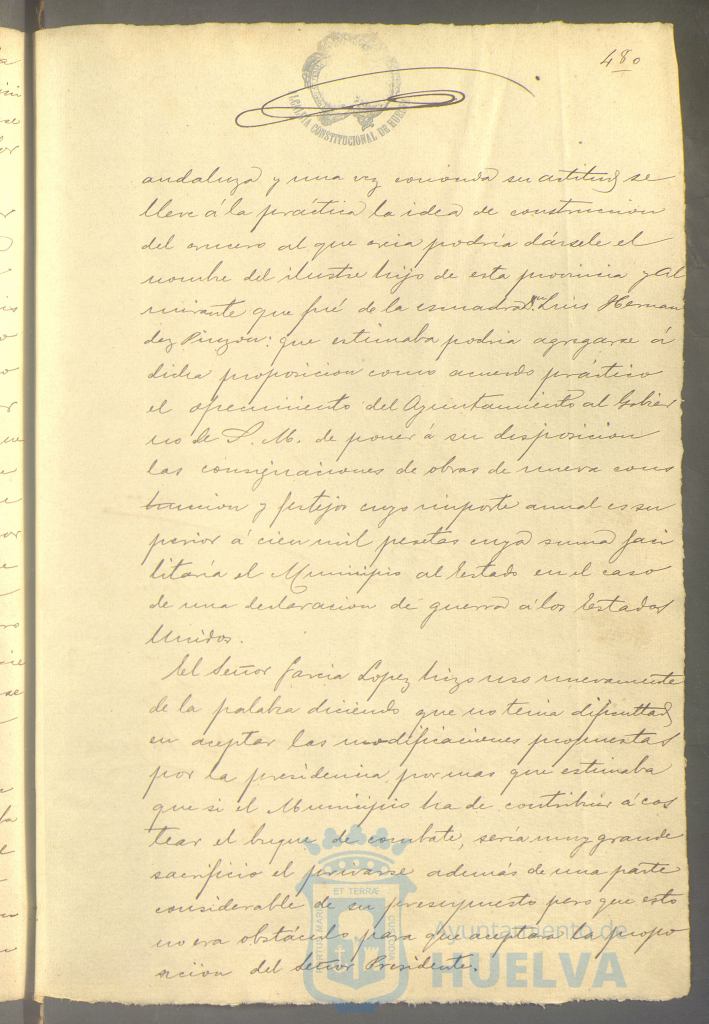 480
ALCALDIA CONSTITUCIONAL DE HUELVA
andaluza y una vez conocida su actitud se
lleve á la práctica la idea de construccion
del crucero al que creia podría dársele el
nombre del ilustre hijo de esta provincia y Al
mirante que fué de la escuadra Dn. Luis Hernan
dez Pinzon: que estimaba podria agregarse á
dicha proposicion como acuerdo práctico
el ofrecimiento del Ayuntamiento al Gobier
no de S. M. de poner á su disposicion
las consignaciones de obras de nueva cons
truccion y festejos cuyo importe anual es su
perior á cien mil pesetas cuya suma faci
litaría el Municipio al Estado en el caso
de una declaracion de guerra á los Estados
Unidos.
El Señor Garcia Lopez hizo uso nuevamente
de la palabra diciendo que no tenia dificultad
en aceptar las modificaciones propuestas
por la presidencia, por mas que estimaba
que si el Municipio ha de contribuir á cos
tear el buque de combate, sería muy grande
sacrificio el privarse además de una parte
considerable de su presupuesto pero que esto
no era obstáculo para que aceptara la propo
sicion del Señor Presidente.
PORTUS MARIS ET TERRÆ CUSTODIA
Ayuntamiento de
HUELVA